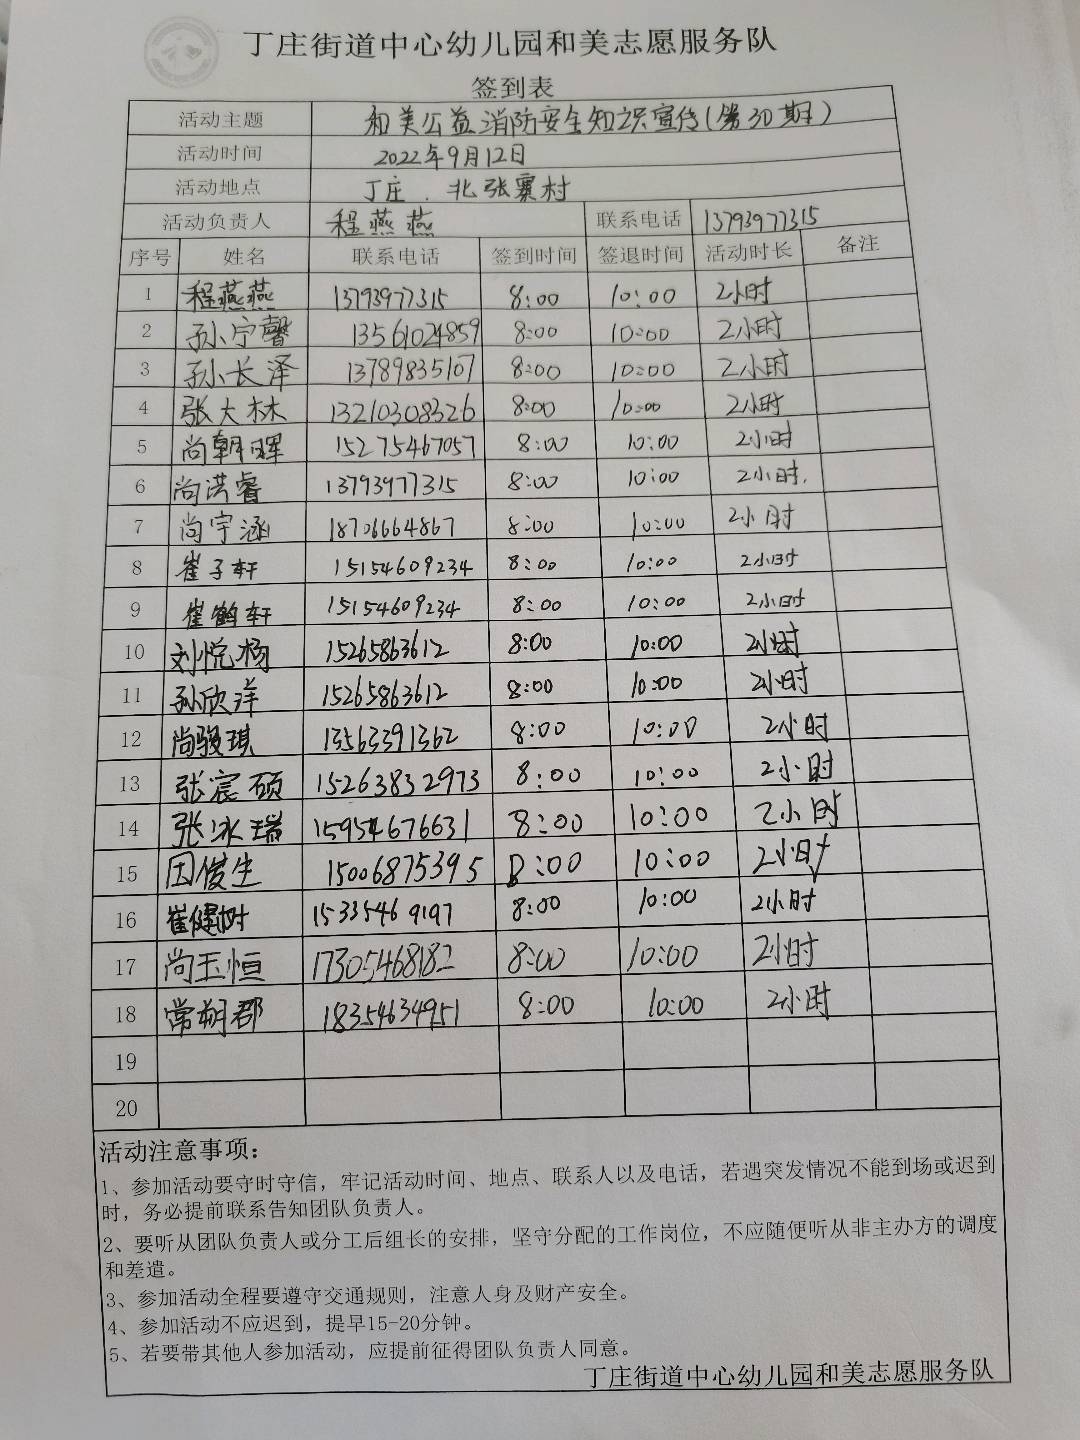 丁庄街道中心幼儿园和美志愿服务队
签到表
活动主题 和美公益消防安全知识宣传(第30期)
活动时间 2022年9月12日
活动地点 丁庄.北张寨村
活动负责人 程燕燕 联系电话 13793977315
序号 姓名 联系电话 签到时间 签退时间 活动时长 备注
1 程燕燕 13793977315 8:00 10:00 2小时
2 孙宁馨 13561024859 8:00 10:00 2小时
3 孙长泽 13789835107 8:00 10:00 2小时
4 张大林 13210308326 8:00 10:00 2小时
5 尚朝晖 15275467057 8:00 10:00 2小时
6 尚洪睿 13793977315 8:00 10:00 2小时.
7 尚宇涵 18706664867 8:00 10:00 2小时
8 崔子轩 15154609234 8:00 10:00 2小时
9 崔鹤轩 15154609234 8:00 10:00 2小时
10 刘悦杨 15265863612 8:00 10:00 2小时
11 孙欣洋 15265863612 8:00 10:00 2小时
12 尚骏琪 13563391362 8:00 10:00 2小时
13 张宸硕 15263832973 8:00 10:00 2小时
14 张冰瑞 15954676631 8:00 10:00 2小时
15 田俊生 15006875395 8:00 10:00 2小时
16 崔健树 15335469197 8:00 10:00 2小时
17 尚玉恒 17305468182 8:00 10:00 2小时
18 常朔郡 18354634951 8:00 10:00 2小时
19
20
活动注意事项：
1、参加活动要守时守信，牢记活动时间、地点、联系人以及电话，若遇突发情况不能到场或迟到
时，务必提前联系告知团队负责人。
2、要听从团队负责人或分工后组长的安排，坚守分配的工作岗位，不应随便听从非主办方的调度
和差遣。
3、参加活动全程要遵守交通规则，注意人身及财产安全。
4、参加活动不应迟到，提早15-20分钟。
5、若要带其他人参加活动，应提前征得团队负责人同意。
丁庄街道中心幼儿园和美志愿服务队